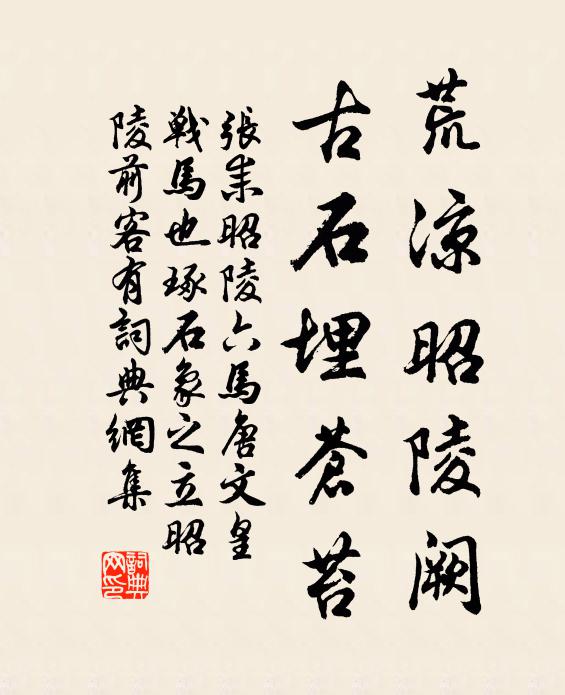 荒涼昭陵闕
古石埋蒼苔
張耒昭陵六馬唐文皇
戰馬也琢石象之立昭
陵前客有詞典網集
詞典网印